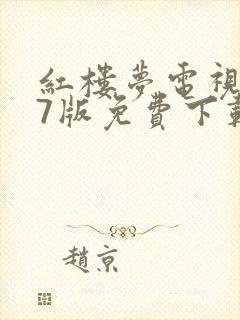 紅樓夢電視
7版免費下載
趙京